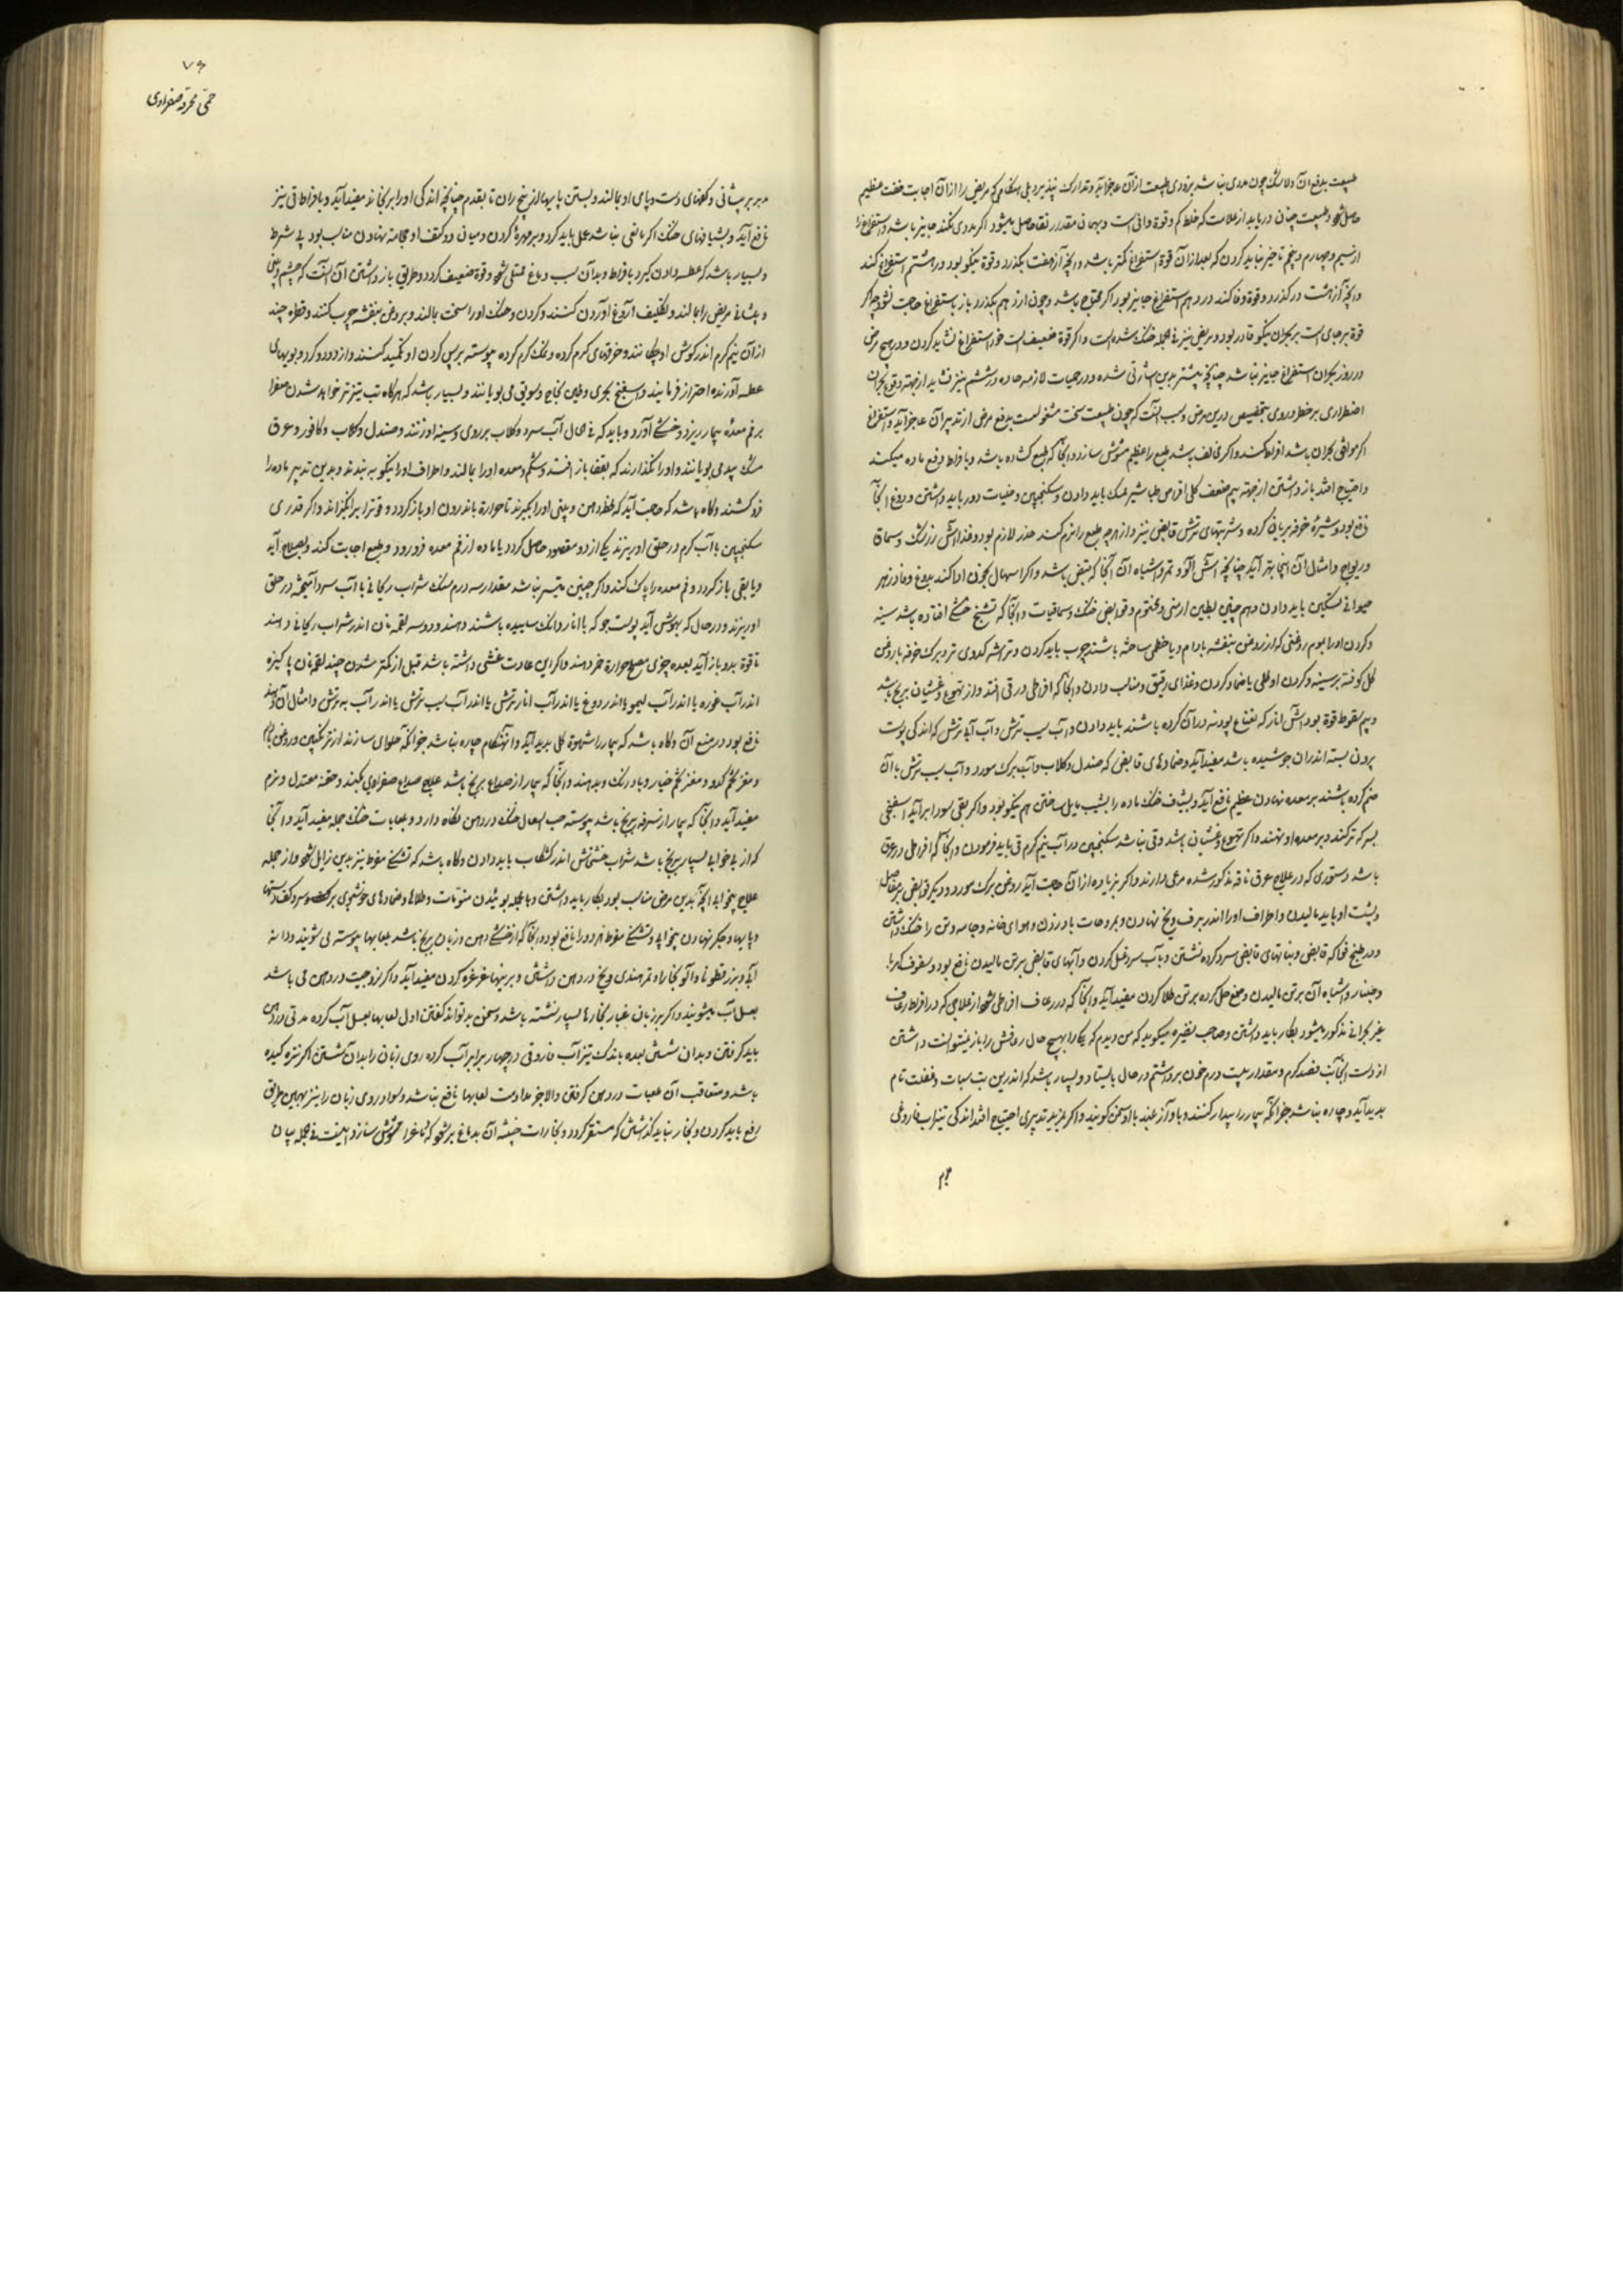 طبیعت بدفع آن و لاشک چون مددی نباشد بزودی طبیعت از آن عاجز آید و تدارک نپذیرد بلی هنگامی که مریض را از آن اجابت خفت عظیم
حاصل شود و طبیعت چنان دریابد از علامت که خلط کم و قوة وافی است و بهمان مقدار نقا حاصل میشود اگر مددی نکند جایز باشد و استفراغ را
از سیم و چهارم و پنجم تاخیر نباید کردن که بعد از آن قوة استفراغ کمتر باشد و آنچه از هفت بگذرد و قوة نیکو بود در هشتم استفراغ کند
و آنچه از هشت درگذرد و قوة وفا کند در دهم استفراغ جایز بود اگر محتاج باشد و چون از دهم بگذرد باز باستفراغ حاجت نشود چه اگر
قوة بر جای است بر بحران نیکو قادر بود و مریض نیز فی الجمله خفت شده است و اگر قوة ضعیف است خود استفراغ نشاید کردن و در هیچ مرض
در روز بحران استفراغ جایز نباشد چنانچه پیشتر بدین اشارتی شده و در حمیات لازمه حاده در ششم نیز نشاید از جهة وقوع بحران
اضطراری بر خطر روی بتخصیص درین مرض و سبب آنست که چون طبیعت سخت مشغولست بدفع مرض از تدبیر آن عاجز آید و استفراغ
اگر موافق بحران باشد افراط کند و اگر مخالف باشد طبع را عظیم مشوش سازد و آنجا که طبع گشاده باشد و بافراط دفع ماده میکند
و احتیاج افتد باز داشتن از جهة بیم ضعف کلی اقراص طباشیر ممسک باید دادن و سکنجبین و حمضیات دور باید داشتن و دوغ آنجا
نافع بود و شیرهٔ خرفه بریان کرده و شربتهای ترش قابض نیز و از هر چه طبع را نرم کند حذر لازم بود و غذا آش زرشک و سماق
و ریواج و امثال آن اینجا بهتر آید چنانچه آش آلو و تمر و اشباه آن آنجا که قبض باشد و اگر اسهال بخون ادا کند بدوغ و فادزهر
حیوانی تسکین باید دادن و هم چنین بطین ارمنی و مختوم و قوابض خنک و سماقیات و آنجا که تشنج خشک افتاده باشد سینه
و گردن او را بموم روغنی که از روغن بنفشه بادام و یا خطمی ساخته باشند چرب باید کردن و تراشه کدوی تر و برگ خرفه با روغن
گل کوفته بر سینه و گردن او طلی یا ضماد کردن و غذای رقیق مناسب دادن و آنجا که افراطی در قی افتد و از تهوع و غشیان برنج باشد
و بیم سقوط قوة بود آش انار که نعناع پودنه در آن کرده باشند باید دادن و آب سیب ترش و آب آبی ترش که اندکی پوست
برون پسته اندران جوشیده باشد مفید آید و ضمادهای قابض که صندل و گلاب و آب برگ مورد و آب سیب ترش با آن
ضم کرده باشند بر معده نهادن عظیم نافع آید و بشیاف خنک ماده را بشیب مایل ساختن هم نیکو بود و اگر بقی سودا برآید اسفنجی
بسرکه تر کنند و بر معده او نهند و اگر تهوع و غشیان باشد و قی نباشد سکنجبین در آب نیم گرم قی باید فرمودن و آنجا که افراطی در عرق
باشد دستوری که در علاج عرق ناقه مذکور شده مرعی دارند و اگر زیاده از آن حاجت آید روغن برگ مورد و دیگر قوابض بر مفاصل
و پشت او باید مالیدن و اطراف او را اندر برف و یخ نهادن و بمروحات باد زدن و هوای خانه و جامه و تن را خنک داشتن
و در طبیخ فواکه قابض و نباتهای قابض سرد کرده نشستن و بآب سرد غسل کردن و آبهای قابض بر تن مالیدن نافع بود و سفوف کهربا
و جلنار و اشباه آن بر تن مالیدن و صمغ حل کرده بر تن طلا کردن مفید آید و آنجا که در رعاف افراطی شود از علاجی که در افراط رعاف
غیر بحرانی مذکور میشود بکار باید داشتن و صاحب تبصره میگوید که من دیدم که یکی را بهیچ حال رعافش را باز نمیتوانست داشتن
از دست آنجانب فصد کردم و مقدار بیست درم خون برداشتم در حال بایستاد و بسیار باشد که اندرین تب سبات و غفلت تام
پدید آید و چاره نباشد جز آنکه بیمار را بیدار کنند و بآواز بلند با او سخن گویند و اگر بمزید تدبیری احتیاج افتد اندکی تیزاب فاروقی
۷۶
حمی محرقه صفراوی
بر پیشانی و کفهای دست و پای او بمالند و بستن پایها از بیخ ران تا بقدم چنانچه اندکی او را برنجاند مفید آید و بافراط قی نیز
نافع آید و بشیافهای خنک اگر مانعی نباشد عمل باید کرد و بر مهرهٔ گردن و میان دو کتف او محجامه نهادن مناسب بود بی شرط
و بسیار باشد که عطسه دادن گیرد بافراط و بدان سبب دماغ ممتلی شود و قوة ضعیف گردد و طریق باز داشتن آن آنست که چشم و بینی
و پیشانی مریض را بمالند و بتکلیف آروغ آوردن کنند و گردن و حنک او را سخت بمالند و بروغن بنفشه چرب کنند و قطره چند
از آن نیم گرم اندر گوش او چکانند و خرقهای گرم کرده و نمک گرم کرده پیوسته بر پس گردن او تکمید کنند و از دود و گرد و بویهای
عطسه آورنده احتراز فرمایند و اسفنج بحری و طین نجاح و سویق می بویانند و بسیار باشد که هرگاه تب تیزتر خواهد شدن صفرا
بر فم معدهٔ بیمار ریزد و خشکی آورد و باید که فی الحال آب سرد و گلاب بر روی و سینه او زنند و صندل و گلاب و کافور و عرق
بید می بویانند و او را نگذارند که بقفا باز افتد و شکم و معده او را بمالند و اطراف او را نیکو به بندند و بدین تدبیر ماده را
فرو کشند و گاه باشد که حاجت آید که لحظهٔ دهن و بینی او را بگیرند تا حرارة باندرون او باز گردد و قوة را برانگیزاند و اگر قدری
سکنجبین با آب گرم در حلق او ریزند یکی از دو مقصود حاصل گردد یا ماده از فم معده فرو رود و طبع اجابت کند و بصلاح آید
و یا بقی باز گردد و فم معده را پاک کند و اگر چنین میسر نباشد مقدار سه درم سنگ شراب ریحانی با آب سرد آمیخته در حلق
او ریزند و در حال که بهوش آید پوست جو که با انار دانگ ساییده باشند دهند و دو سه لقمه نان اندر شراب ریحانی دهند
تا قوة بدو باز آید بعده چیزی مصلح حرارة خمر دهند و اگر این عادت غشی داشته باشد قبل از گمتر شدن چند لقمه نان پاکیزه
اندر آب غوره یا اندر آب لیمو یا اندر دوغ یا اندر آب انار ترش یا اندر آب سیب ترش یا اندر آب به ترش و امثال آن دهند
نافع بود در منع آن و گاه باشد که بیمار را شهوة کلی پدید آید و آنهنگام چاره نباشد جز آنکه حلوای سازند از ترنگبین و روغن بادام
و مغز تخم کدو و مغز تخم خیار و بادرنگ و بدهند و آنجا که بیمار از صداع برنج باشد علاج صداع صفراوی بکنند و حقنه معتدل و نرم
مفید آید و آنجا که بیمار از سرفه برنج باشد پیوسته حب السعال خنک در دهن نگاه دارد و لعابات خنک جمله مفید آید و آنجا
که از بی خوابی بسیار برنج باشد شراب خشخاش اندر کشکاب باید دادن و گاه باشد که تشنگی مفرط نیز بدین زایل شود و از جمله
علاج بیخوابی آنچه بدین مرض مناسب بود بکار باید داشتن و بالجمله بوئیدن منومات و طلاها و ضمادهای خوشبوی بر کف و سر و کف دستها
و پایها و جگر نهادن بیخوابی و تشنگی مفرط هر دو را نافع بود و آنجا که از خشکی دهن و زبان برنج باشد بلعابها پیوسته می شویند و دانه
آبی و بزرقطونا و آلو بخارا و تمر هندی و یخ در دهن داشتن و برینها غرغره کردن مفید آید و اگر لزوجیت در دهن می باشد
بعسل آب میشویند و اگر بر زبان غبار بخارها بسیار نشسته باشد و سخن بد تواند گفتن اول لعابها بعسل آب کرده مدتی در دهن
باید گرفتن و بدان شستن بعده باندک تیزاب فاروقی در چهار برابر آب کرده روی زبان را بدان شستن اگر نتره کیده
باشد و متعاقب آن لعابات در دهن گرفتن و الا جز مداومت لعابها نافع نباشد و سواد روی زبان را نیز بهمین طریق
رفع باید کردن و بخار نباید گذاشتن که مستقر گردد و بخارات خبیثه آن بدماغ بر شود که مالیخولیا و مشوش سازد و اینست فی الجمله بیان